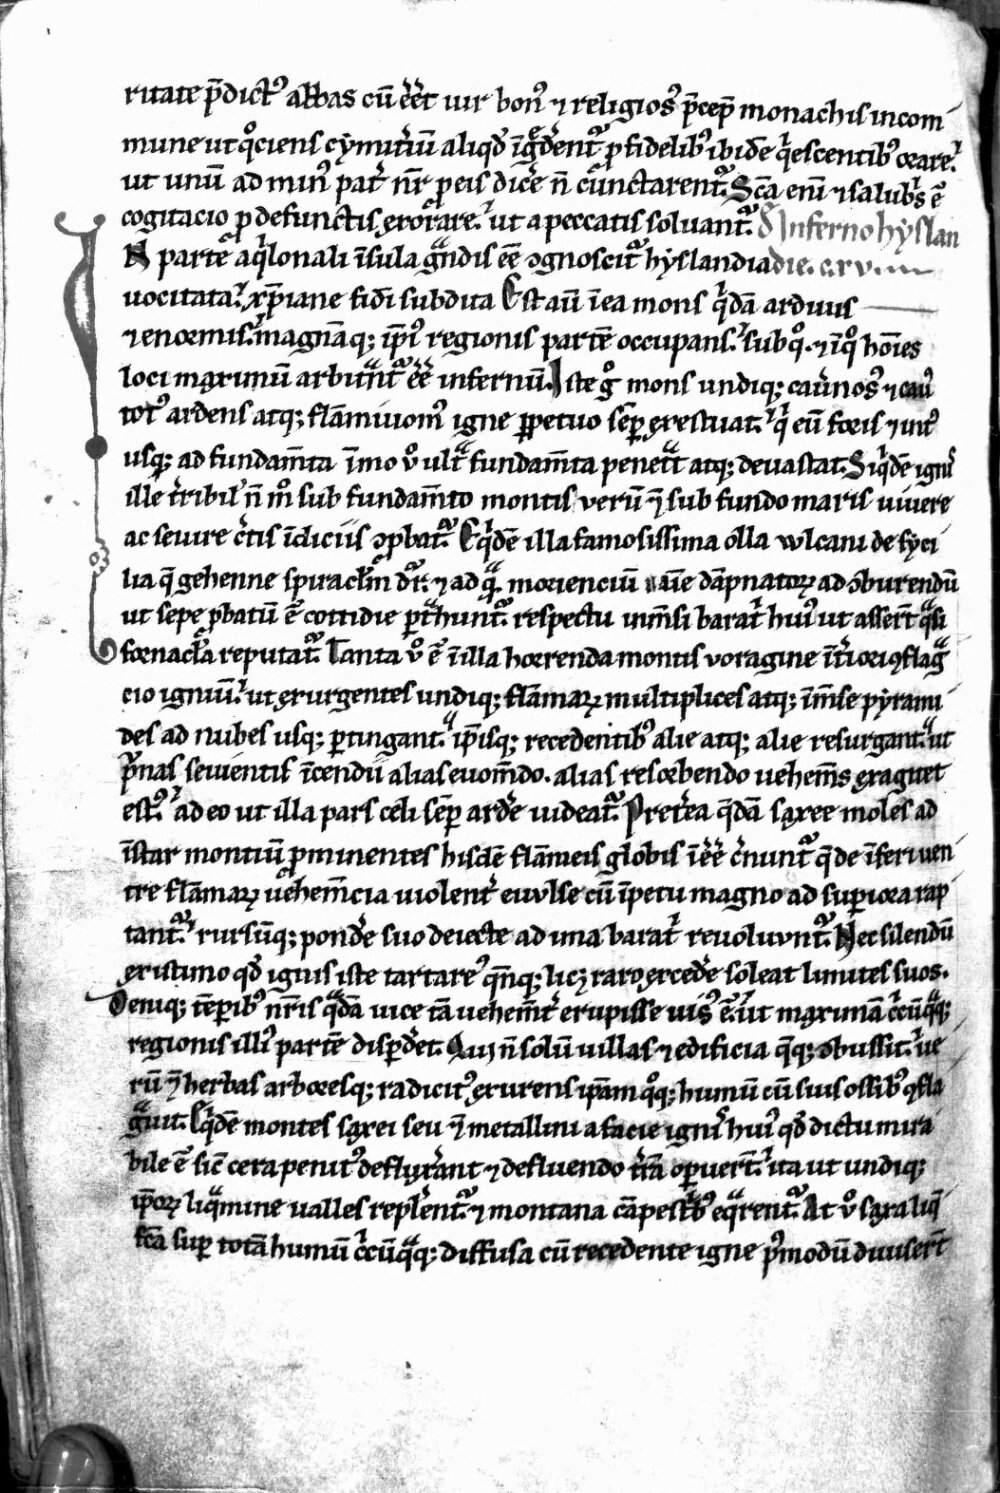 ritate p̄dictꝰ abbas cū eēt uir bonꝰ ⁊ religiosꝰ p̄cep̄ monachis in com
mune ut qͦciens cẏmit̓iū aliqd̓ īg̓der̄entᷣ ꝓ fidelibꝰ ibidē qͥescentibꝰ orare.ᷣ
ut unū ad minꝰ pat̓ nr̄ ꝓ eis dic̓e n̄ cūnctarentᷣ. Sc̄a enī ⁊ salubͥs ē
cogitacio ꝓ defunctis exorͣare.ᷣ ut a peccatis soluantᷣ. d̓ Inferno hyslan
IN partē aqͥlonali īsula gͣndis eē ꝯgnoscitᷣ hyslandia die. c.xv.iiii
uocitata.ᷣ xp̄iane fidi subdita Est aūt ī ea mons qͥdā arduus
⁊ enormis.ᷣ magnāq; ip̄iꝰ regionis partē occupans.ᷣ sub qͦ. ⁊ ī qͦ hoīes
loci maximū arbitͣntᷣ eē̄ infernū. Iste gͦ mons undiq; cau̓nosꝰ ⁊ cau̓
totꝰ ardens atq; flāmiuomꝰ igne ꝑpetuo semꝑ exestuat.ᷣ qͥ eū foris ⁊ intꝰ
usq; ad fundam̄ta īmo v̓ ultͣ fundam̄ta penetͣt atq; deuastat. Siqͥdē ignꝰ
ille t̓ribil̓ n̄ mͦ sub fundam̄to montis verū ⁊ sub fundo maris uiuere
ac seuire c̓tis īdiciis ꝯꝓbatᷣ. Sqͥdē illa famosissima olla wlcani de syci
lia q̄ gehenne spiraclm̄ dr̄. ⁊ ad qͣ. moriencium aīe dāpnatoꝝ ad ꝯburendū
ut sepe ꝓbatū ē cottidie ꝑtͣhuntᷣ. respectu inm̄si barat̓ huiꝰ ut asser̄t qͣsi
fornacl̓a reputatᷣ. Tanta v̓ ē ī illa horrenda montis voragine īt̓iori ꝯflagͣ
cio igniū.ᷣ ut exurgentes undiq; flāmaꝝ multiplices atq; īm̄se pẏrami
des ad nubes usq; ꝑtingant.ᷣ ip̄isq; recedentibꝰ alie atq; alie resurgant.ᷣ ut
p̄nas seuientis īcendii alias euom̄do. alias resorbendo uehem̄s exagitet
estꝰ.ᷣ ad eo ut illa pars celi semꝑ ard̓e uideatᷣ. Pret̓ea qͣdā saxee moles ad
īstar montiū ꝓminentes hisdē flāmeis globis īeē̄ c̓nuntᷣ q̄ de īferi uen
tre flāmaꝝ uehem̄cia violent̓ euulse cū īpetu magno ad suꝑiora rap
tantᷣ.ᷣ rursūq; pond̓e suo deiecte ad ima barat̓ reuoluuntᷣ. Nec silendū
existimo qd̓ ignis iste tartareꝰ qn̄q; licꝫ raro exced̓e soleat limites suos.
Deniq; tēꝑibꝰ nr̄is qͣdā uice tā uehem̄t̓ erupisse uisꝰ ē.ᷣ ut maximā c̓cūqͣq;
regionis illiꝰ partē disꝑd̓et. Qui n̄ solū uillas ⁊ edificia qͣq; ꝯbussit.ᷣ ue
rū ⁊ herbas arboresq; radicitꝰ exurens ip̄am qͦq; humū cū suis ossibꝰ ꝯfla
gͣuit. Sqͥdē montes saxei seu ⁊ metallini a facie ignꝰ huiꝰ qd̓ dictu mira
bile ē sic̄ cera penitꝰ deflux̓ant ⁊ defluendo t̓rā oꝑuer̄t.ᷣ ita ut undiq;
ip̄oꝝ liqͣmine ualles repl̓entᷣ. ⁊ montana cāpestͥbꝰ eqͣrentᷣ. At v̓ saxa liq̄
fc̄a suꝑ totā humū c̓cūqͣq; diffusa cū recedente igne p̓modū duuser̄t